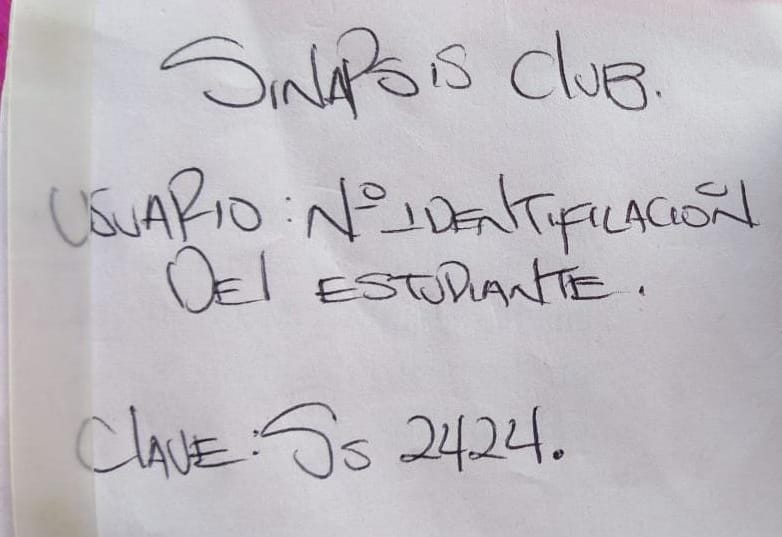 SINAPSIS CLUB.
USUARIO: Nº IDENTIFILACIÓN
DEl ESTUDIANTE.
ClAVE: Ss 2424.